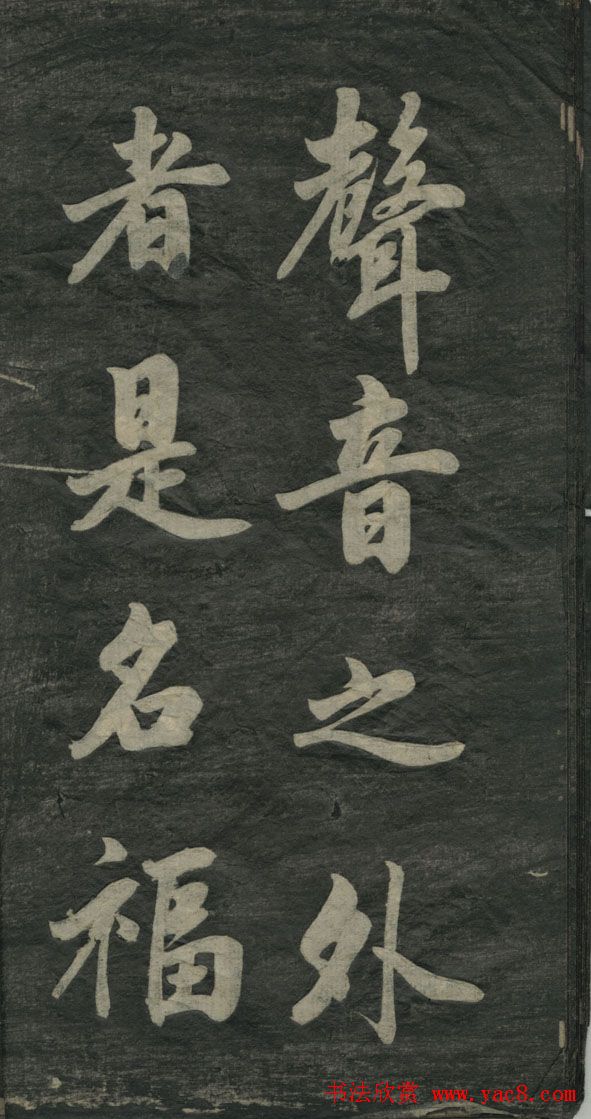 聲音之外
者是名福
书法欣赏 www.yac8.com